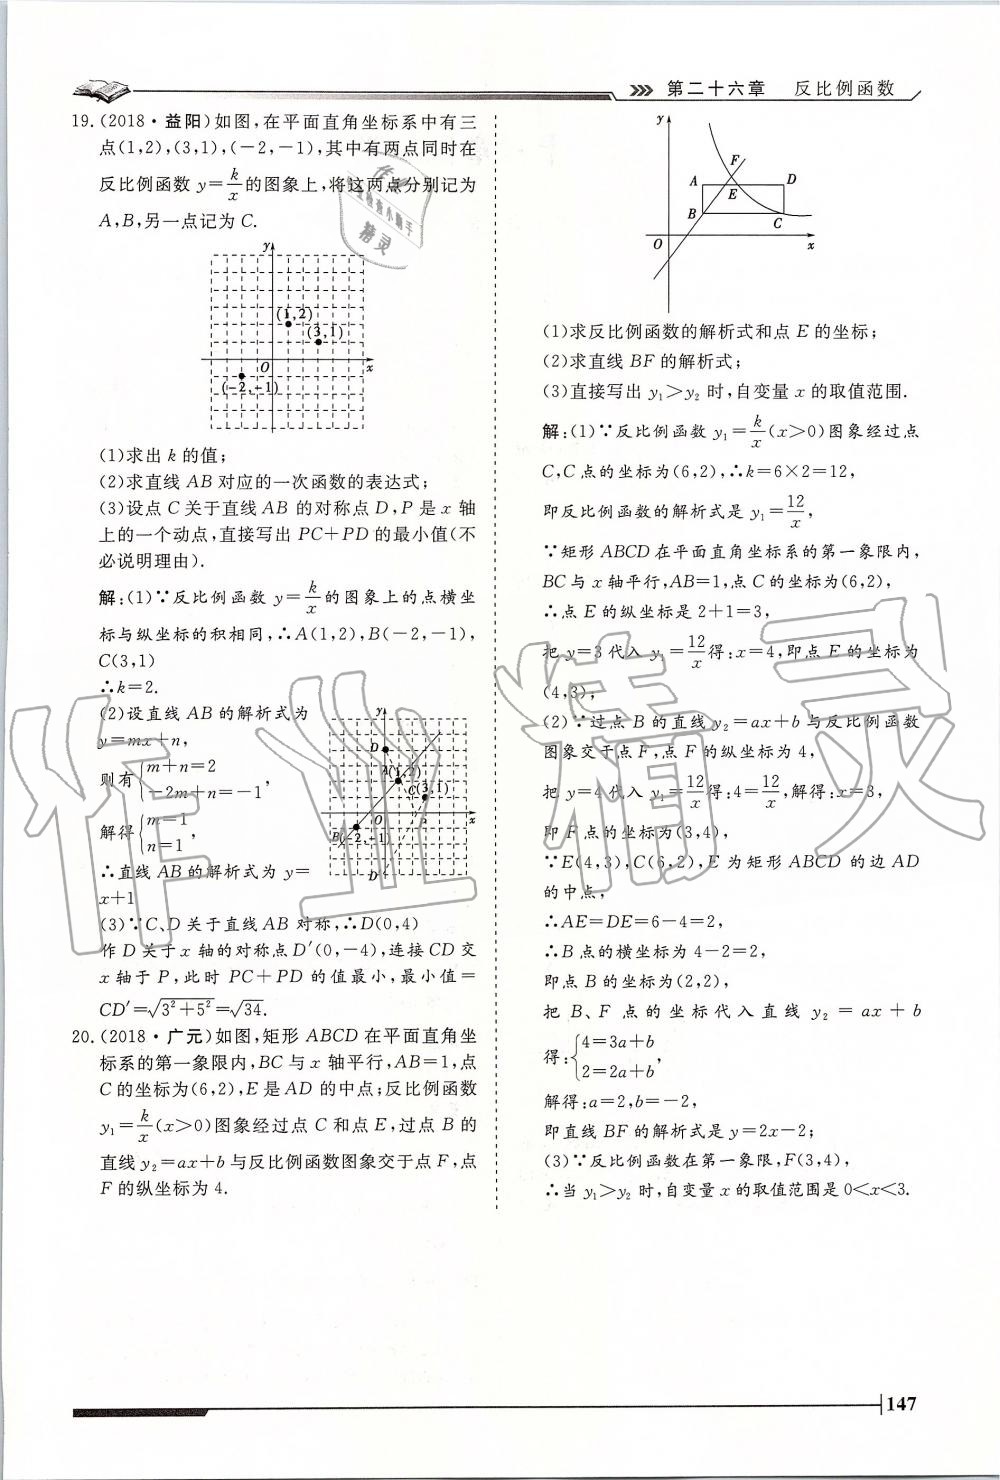 第二十六章 反比例函数
19.(2018·益阳)如图,在平面直角坐标系中有三
点(1,2),(3,1),(-2,-1),其中有两点同时在
反比例函数 y=k/x 的图象上,将这两点分别记为
A,B,另一点记为 C.
y
(1,2)
(3,1)
O x
(-2,-1)
(1)求出 k 的值;
(2)求直线 AB 对应的一次函数的表达式;
(3)设点 C 关于直线 AB 的对称点 D,P 是 x 轴
上的一个动点,直接写出 PC+PD 的最小值(不
必说明理由).
解:(1)∵反比例函数 y=k/x 的图象上的点横坐
标与纵坐标的积相同,∴A(1,2),B(-2,-1),
C(3,1)
∴k=2.
(2)设直线 AB 的解析式为
y=mx+n,
则有{m+n=2
-2m+n=-1,
解得{m=1
n=1,
∴直线 AB 的解析式为 y=
x+1
y
D
A(1,2)
C(3,1)
O x
B(-2,-1)
D
(3)∵C、D 关于直线 AB 对称,∴D(0,4)
作 D 关于 x 轴的对称点 D′(0,-4),连接 CD 交
x 轴于 P,此时 PC+PD 的值最小,最小值=
CD′=√3²+5²=√34.
20.(2018·广元)如图,矩形 ABCD 在平面直角坐
标系的第一象限内,BC 与 x 轴平行,AB=1,点
C 的坐标为(6,2),E 是 AD 的中点;反比例函数
y₁=k/x(x>0)图象经过点 C 和点 E,过点 B 的
直线 y₂=ax+b 与反比例函数图象交于点 F,点
F 的纵坐标为 4.
y
F
A D
E
B
C
O x
(1)求反比例函数的解析式和点 E 的坐标;
(2)求直线 BF 的解析式;
(3)直接写出 y₁>y₂ 时,自变量 x 的取值范围.
解:(1)∵反比例函数 y₁=k/x(x>0)图象经过点
C,C 点的坐标为(6,2),∴k=6×2=12,
即反比例函数的解析式是 y₁=12/x,
∵矩形 ABCD 在平面直角坐标系的第一象限内,
BC 与 x 轴平行,AB=1,点 C 的坐标为(6,2),
∴点 E 的纵坐标是 2+1=3,
把 y=3 代入 y₁=12/x 得:x=4,即点 E 的坐标为
(4,3),
(2)∵过点 B 的直线 y₂=ax+b 与反比例函数
图象交于点 F,点 F 的纵坐标为 4,
把 y=4 代入 y₁=12/x 得:4=12/x,解得:x=3,
即 F 点的坐标为(3,4),
∵E(4,3),C(6,2),E 为矩形 ABCD 的边 AD
的中点,
∴AE=DE=6-4=2,
∴B 点的横坐标为 4-2=2,
即点 B 的坐标为(2,2),
把 B、F 点的坐标代入直线 y₂=ax+b
得:{4=3a+b
2=2a+b,
解得:a=2,b=-2,
即直线 BF 的解析式是 y=2x-2;
(3)∵反比例函数在第一象限,F(3,4),
∴当 y₁>y₂ 时,自变量 x 的取值范围是 0<x<3.
147
作业精灵